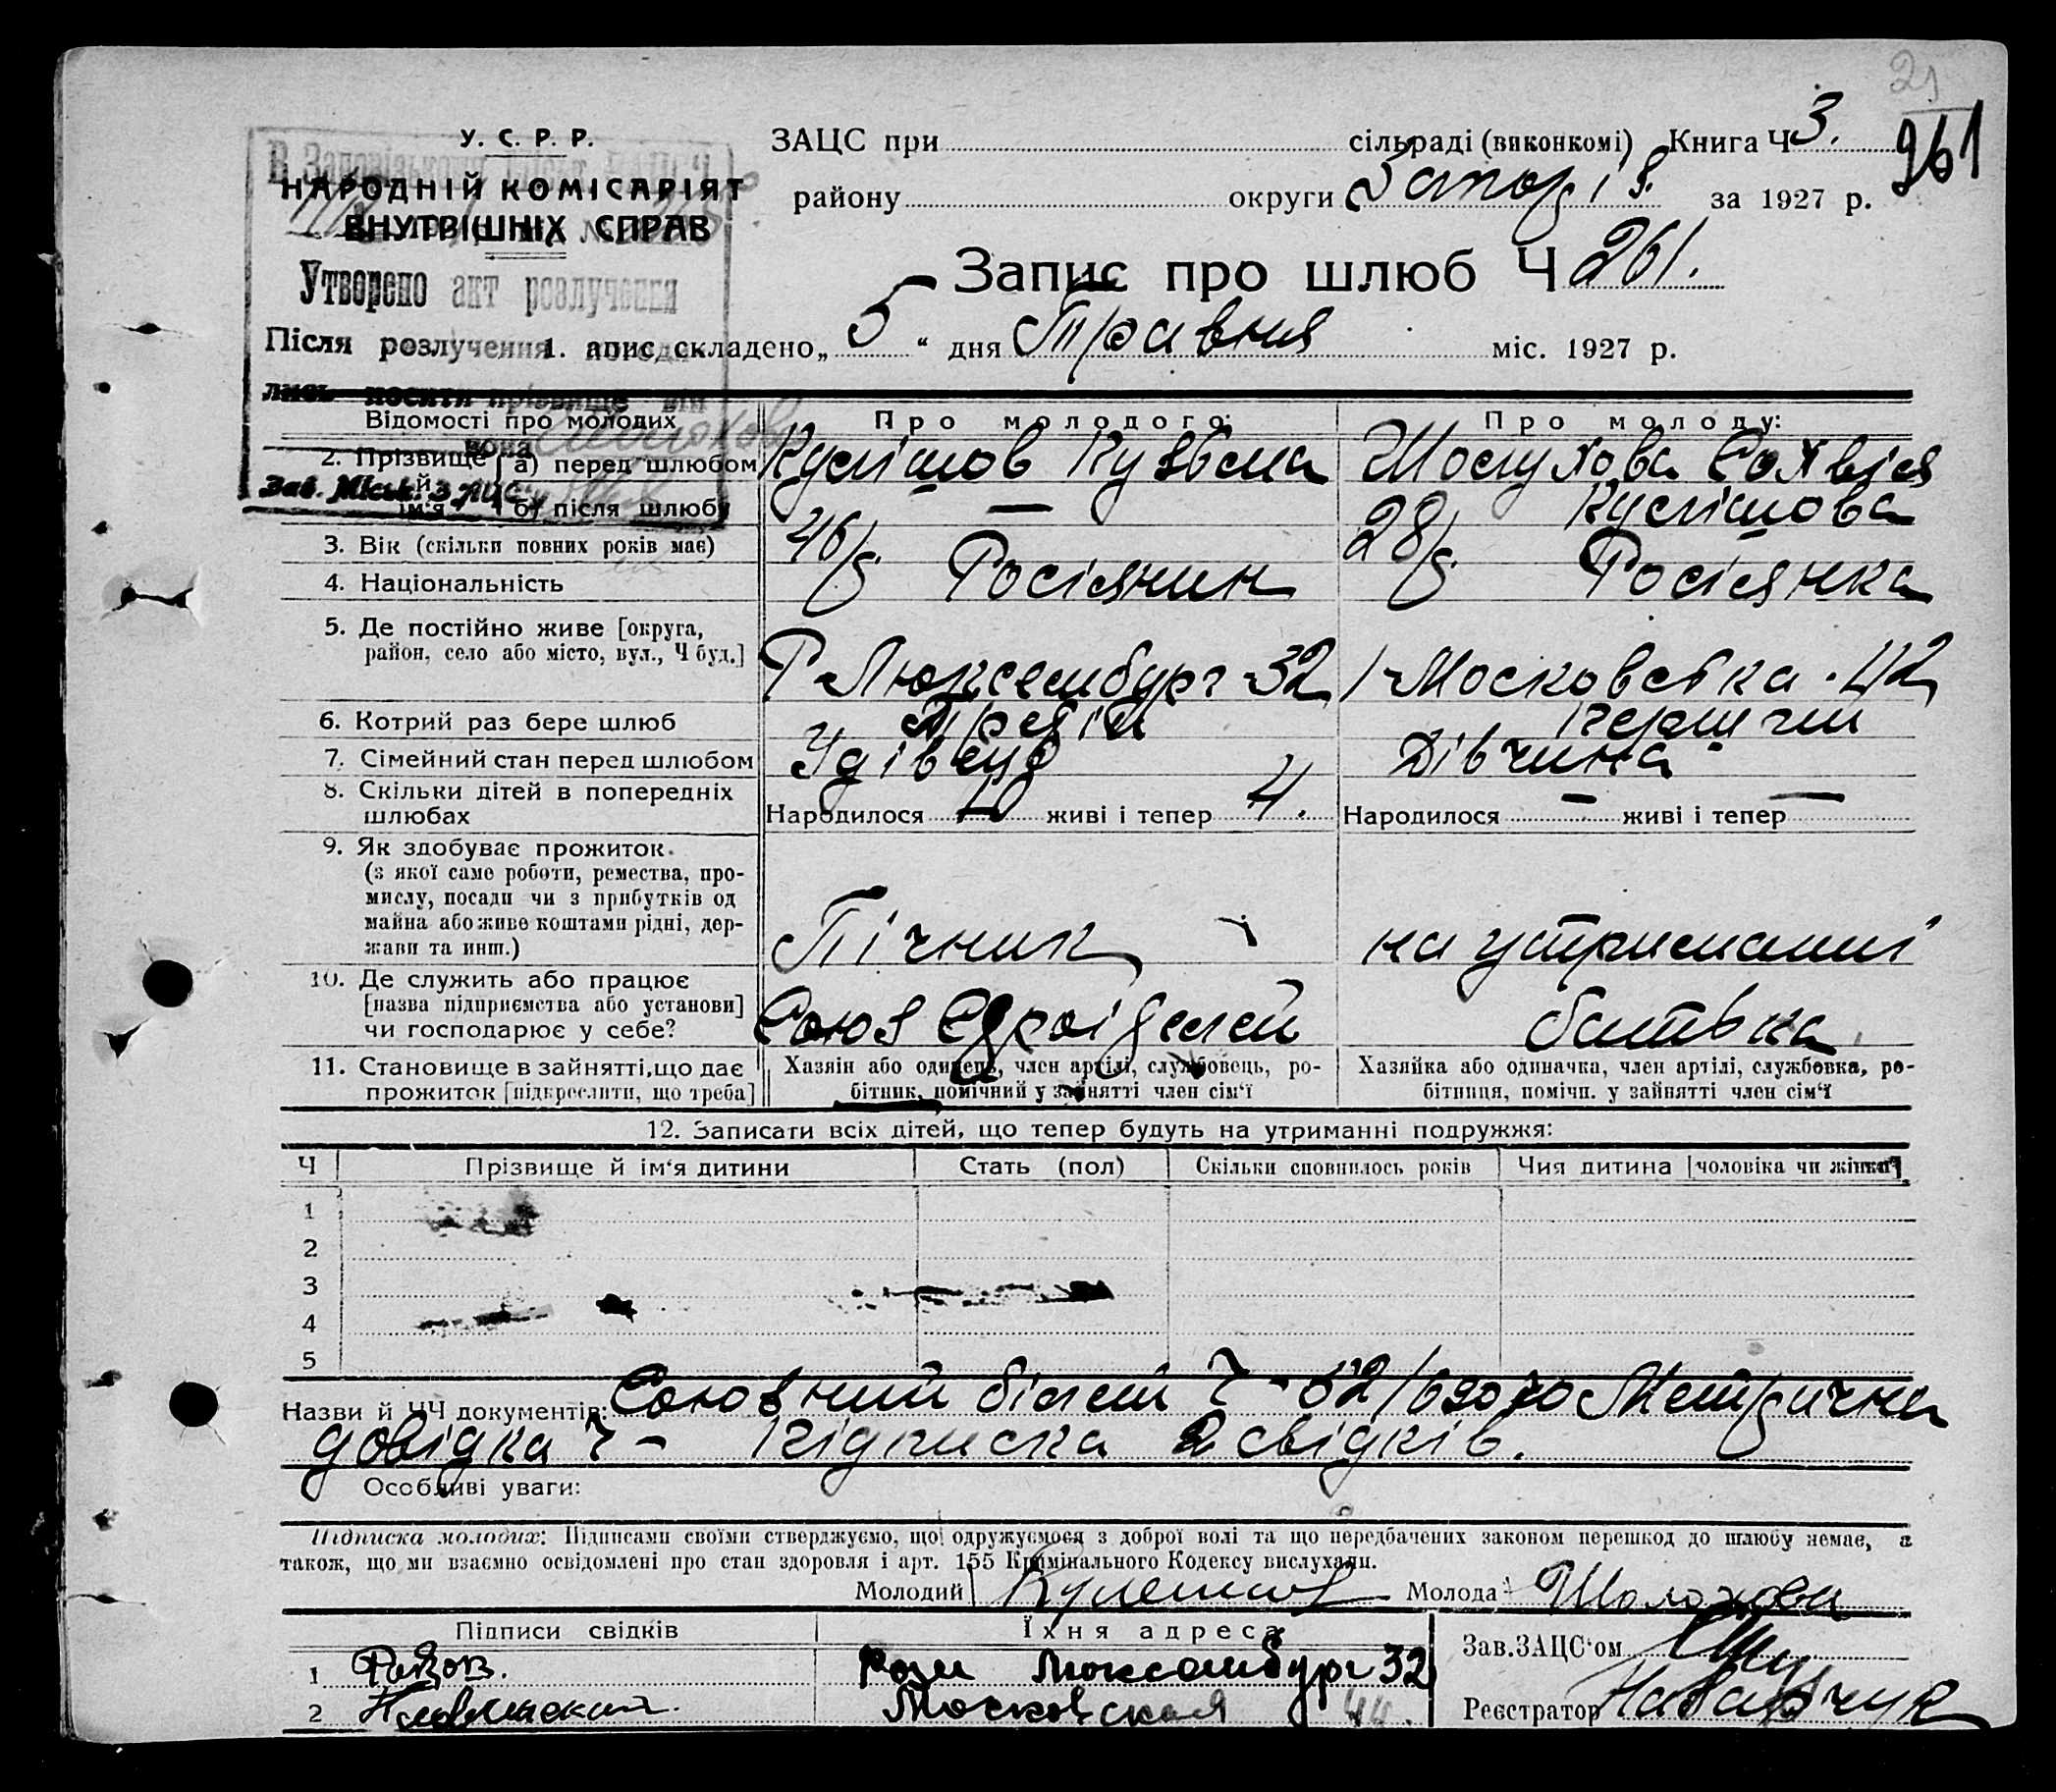 21
У. С. Р. Р.
НАРОДНІЙ КОМІСАРІЯТ
ВНУТРІШНІХ СПРАВ
Утворено акт розлучення
Після розлучення
лись носити прізвище він
вона
Зав. Міськ. ЗАЦС
ЗАЦС при сільраді (виконкомі) Книга Ч 3. 261
району округи Запоріз. за 1927 р.
Запис про шлюб Ч 261.
1. апис складено „ 5 “ дня Травня міс. 1927 р.
Відомості про молодих Про молодого: Про молоду:
2. Прізвище й ім'я а) перед шлюбом Кулішов Кузьма Шолухова Софвія
б) після шлюбу — Кулішова
3. Вік (скільки повних років має) 46/р. 28/р.
4. Національність Росіянин Росіянка
5. Де постійно живе [округа,
район, село або місто, вул., Ч буд.] Р Люксембург 32 Московська 42
6. Котрий раз бере шлюб Третій перший
7. Сімейний стан перед шлюбом Удівець Дівчина
8. Скільки дітей в попередніх
шлюбах Народилося живі і тепер 4. Народилося — живі і тепер —
9. Як здобуває прожиток
(з якої саме роботи, ремества, про-
мислу, посади чи з прибутків од
майна або живе коштами рідні, дер-
жави та инш.) Пічник на утриманні
10. Де служить або працює
[назва підприємства або установи]
чи господарює у себе? Союз Будівелей батька
11. Становище в зайнятті, що дає
прожиток [підкреслити, що треба]
Хазяін або одинець, член артілі, службовець, ро-
бітник, помічний у зайнятті член сім'ї
Хазяйка або одиначка, член артілі, службовка, ро-
бітниця, помічн. у зайнятті член сім'ї
12. Записати всіх дітей, що тепер будуть на утриманні подружжя:
Ч Прізвище й ім'я дитини Стать (пол) Скільки сповнилось років Чия дитина [чоловіка чи жінки]
1
2
3
4
5
Назви й ЧЧ документів: Союзний білет Ч - Метрична
довідка Ч - Підписка 2 свідків.
Особливі уваги:
Підписка молодих: Підписами своїми стверджуємо, що одружуємося з доброї волі та що передбачених законом перешкод до шлюбу немає, а
також, що ми взаємно освідомлені про стан здоровля і арт. 155 Кримінального Кодексу вислухали.
Молодий Кулешов Молода Шолохова
Підписи свідків Їхня адреса Зав. ЗАЦС'ом
1 Розы Люксембург 32
2 Московская 44. Реєстратор